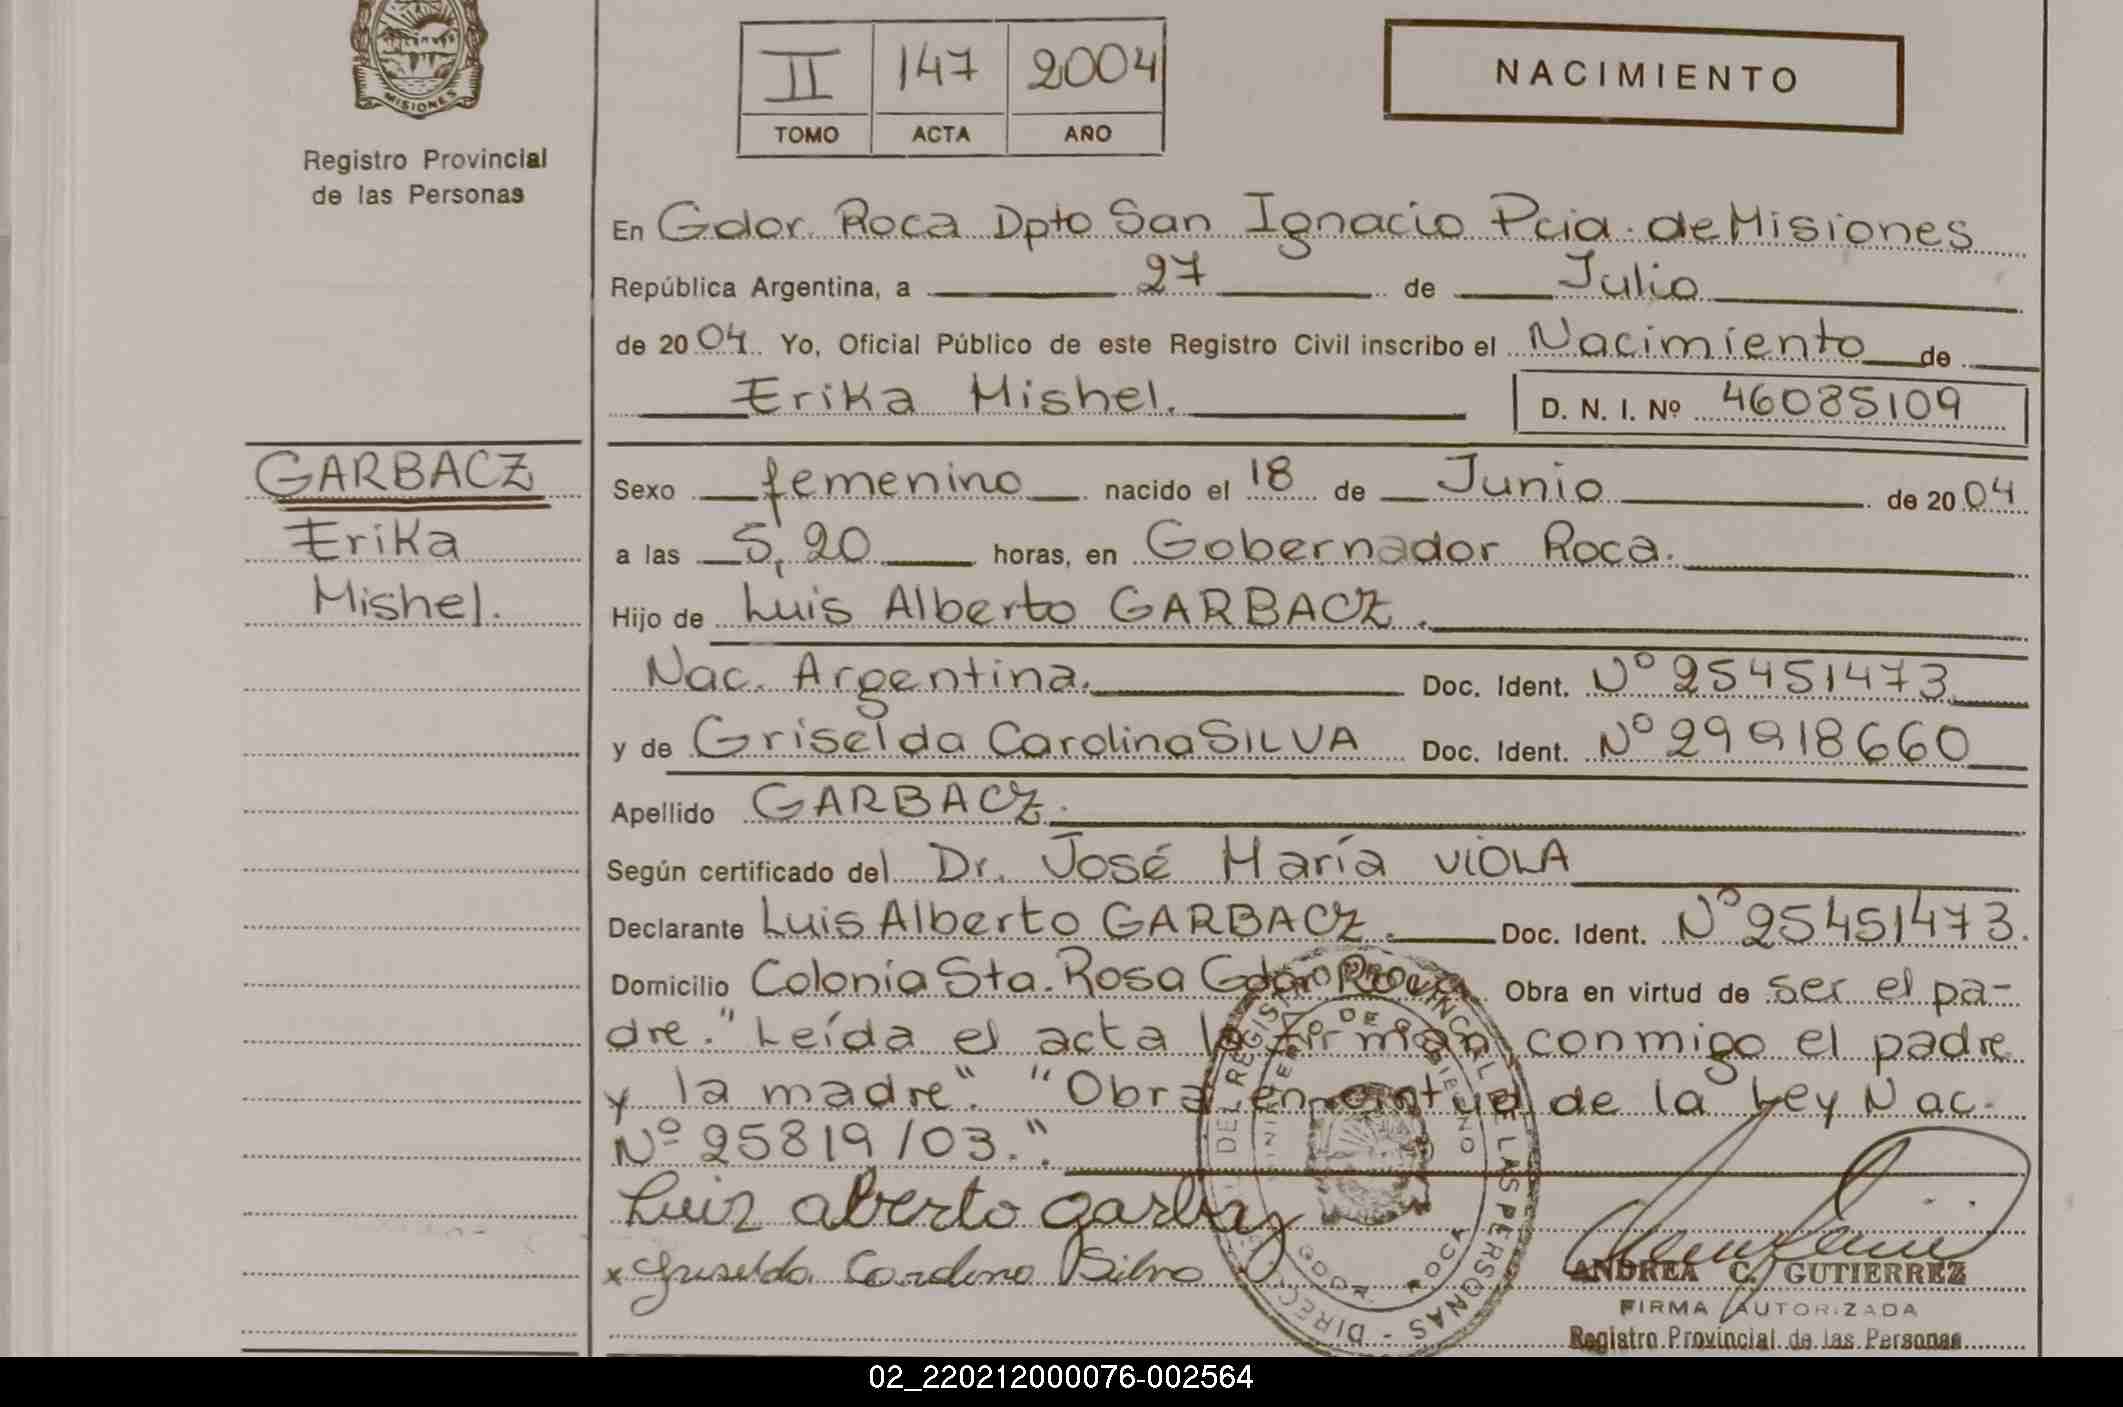 MISIONES
Registro Provincial
de las Personas
II 147 2004
TOMO ACTA AÑO
NACIMIENTO
En Gdor. Roca Dpto San Ignacio Pcia. de Misiones
República Argentina, a 27 de Julio
de 2004. Yo, Oficial Público de este Registro Civil inscribo el Nacimiento de
Erika Mishel.
D. N. I. Nº 46085109
GARBACZ
Erika
Mishel.
Sexo femenino nacido el 18 de Junio de 2004
a las 5,20 horas, en Gobernador Roca.
Hijo de Luis Alberto GARBACZ.
Nac. Argentina. Doc. Ident. Nº 25451473
y de Griselda Carolina SILVA Doc. Ident. Nº 29918660
Apellido GARBACZ.
Según certificado del Dr. José María VIOLA
Declarante Luis Alberto GARBACZ. Doc. Ident. Nº 25451473.
Domicilio Colonia Sta. Rosa Gdor Roca Obra en virtud de ser el pa-
dre." Leída el acta la firman conmigo el padre
y la madre". "Obra en virtud de la Ley Nac.
Nº 25819/03.".
Luis alberto garbaz
x Griselda Carolina Silva
DIREC DEL REGISTRO PROVINCIAL DE LAS PERSONAS -
MINISTERIO DE GOBIERNO
GDOR. ROCA
ANDREA C. GUTIERREZ
FIRMA AUTORIZADA
Registro Provincial de las Personas
02_220212000076-002564